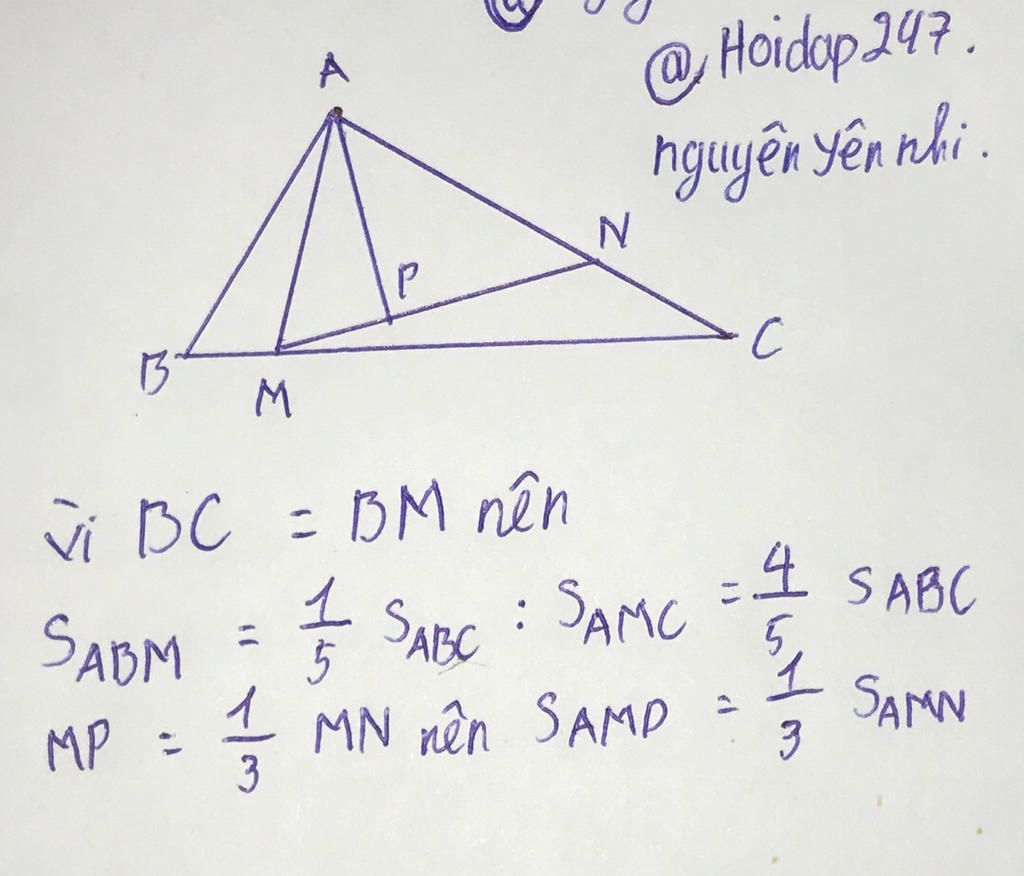 @ Hoidap247.
nguyên yên nhi.
A
N
P
B
C
M
Vì BC = BM nên
S ABM = 1/5 S ABC : S AMC = 4/5 S ABC
MP = 1/3 MN nên S AMP = 1/3 S AMN